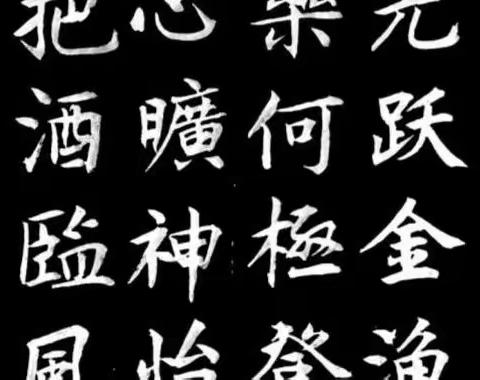 光跃金漁
樂何極登
心曠神怡
把酒臨風